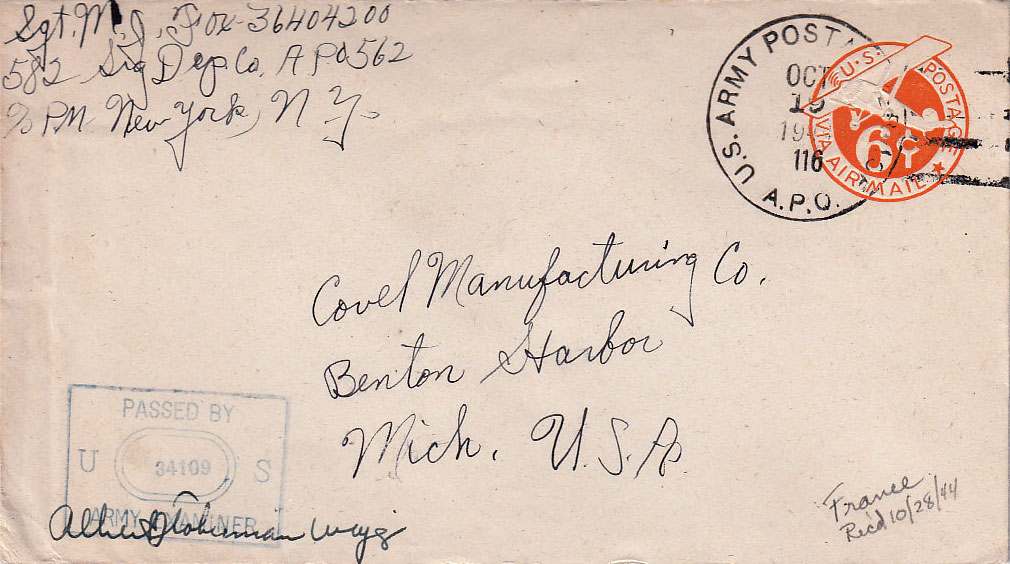 Sgt. M. J. Fox-36404200
582 Sig Dep Co, APO 562
℅ PM New York, N Y.
U.S. ARMY POSTAL
OCT
19
116
A.P.O.
U.S. POSTAGE
6¢
VIA AIR MAIL
Covel Manufacturing Co.
Benton Harbor
Mich. U.S.A.
PASSED BY
U 34109 S
ARMY EXAMINER
France
Rec'd 10/28/44